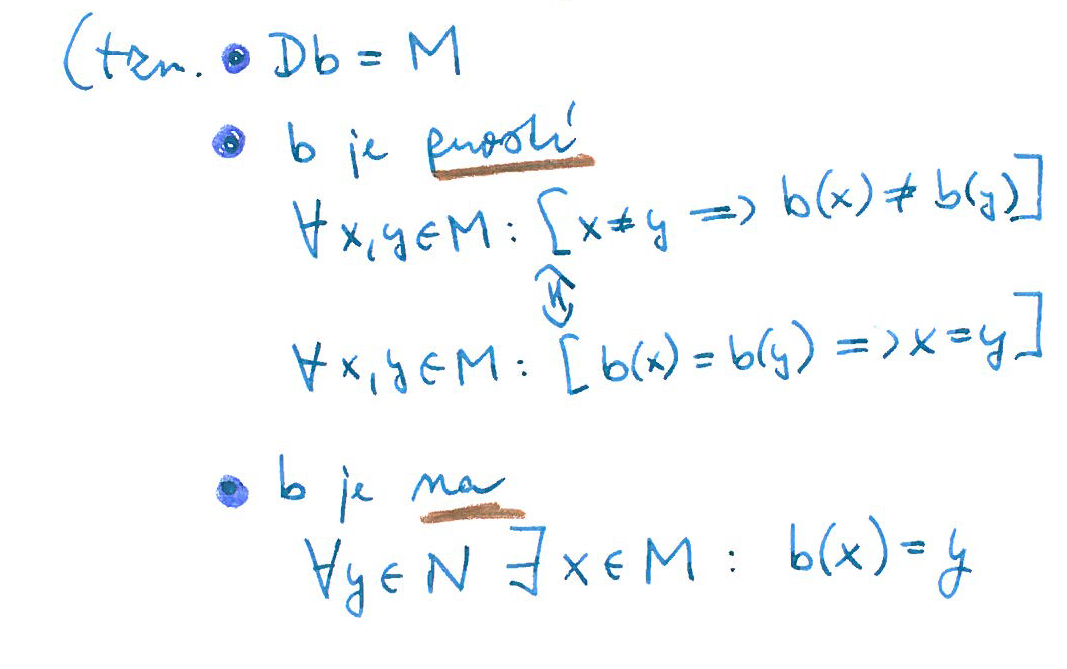 (tzn. • Db = M
• b je prosté
∀x,y∈M: [x≠y => b(x)≠b(y)]
⇕
∀x,y∈M: [b(x)=b(y) => x=y]
• b je na
∀y∈N ∃x∈M: b(x)=y